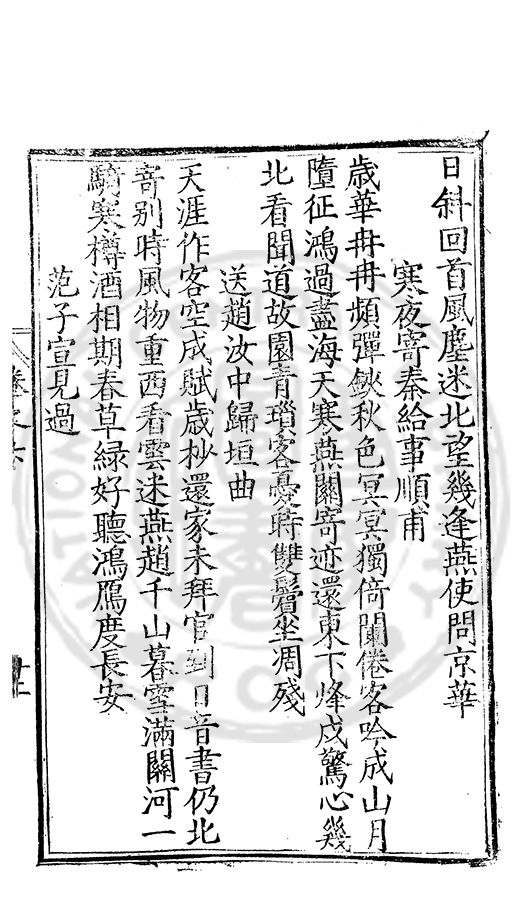 日斜回首風塵迷北望幾逢燕使問京華
寒夜寄秦給事順甫
歲華冉冉頻彈鋏秋色冥冥獨倚闌倦客吟成山月
墮征鴻過盡海天寒燕關寄迹還東下烽戍驚心幾
北看聞道故園青瑣客憂時雙鬢坐凋殘
送趙汝中歸垣曲
天涯作客空成賦歲杪還家未拜官到日音書仍北
寄別時風物重西看雲迷燕趙千山暮雪滿關河一
騎寒樽酒相期春草綠好聽鴻鴈度長安
范子宣見過